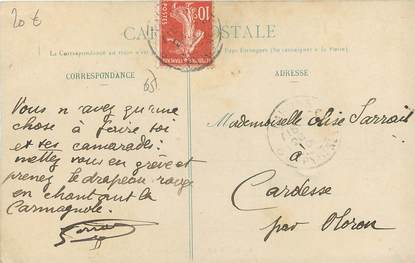 20 €
CARTE POSTALE
10
La Correspondance au recto n'est pas
Pays Etrangers (Se renseigner à la Poste)
CORRESPONDANCE
ADRESSE
Vous n'avez qu'une
chose à faire toi
et tes camarades:
mettez vous en grève et
prenez le drapeau rouge
en chantant la
Carmagnole.
Mademoiselle Elise Sarrail
à
Cardesse
par Oloron